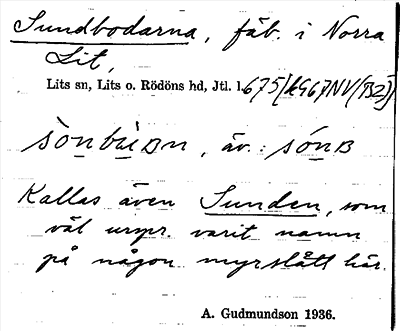 Sundbodarna, fäb. i Norra
Lit,
Lits sn, Lits o. Rödöns hd, Jtl. l.
sònbùɒn, äv.: sónɒ
Kallas även Sunden, som
väl urspr. varit namn
på någon myrslått här.
A. Gudmundson 1936.